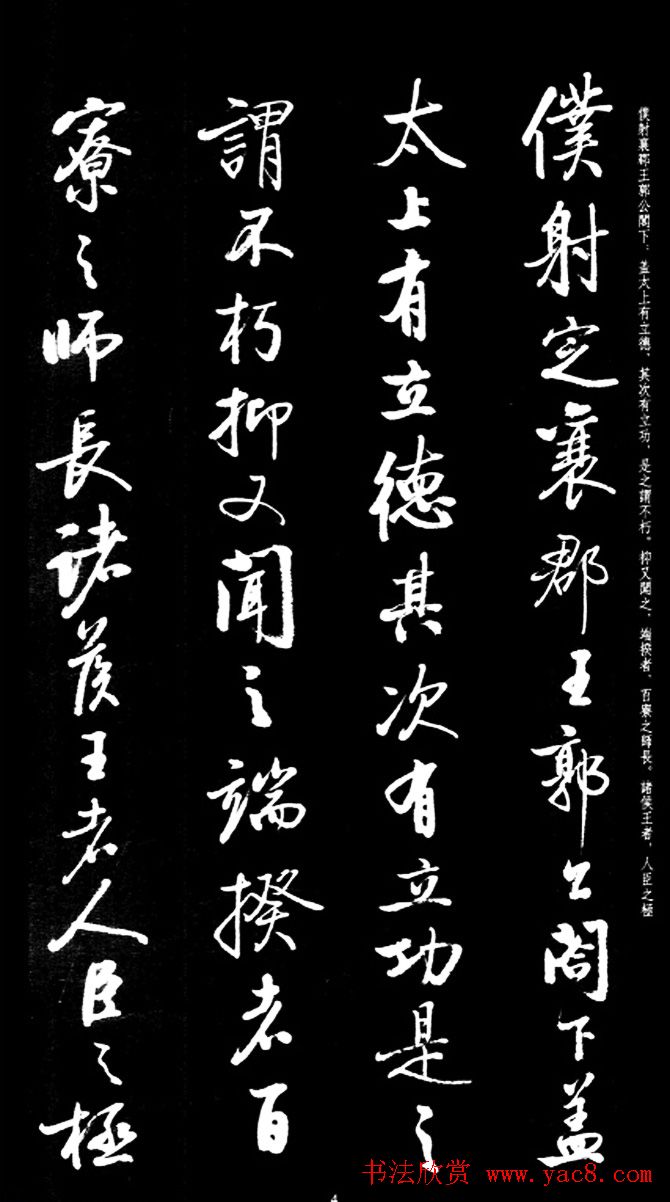 僕射襄郡王郭公閣下：盖太上有立德、其次有立功，是之謂不朽。抑又聞之，端揆者，百寮之師長。諸侯王者，人臣之極
僕射定襄郡王郭公閣下盖
太上有立德其次有立功是之
謂不朽抑又聞之端揆者百
寮之師長諸侯王者人臣之極
书法欣赏 www.yac8.com
4